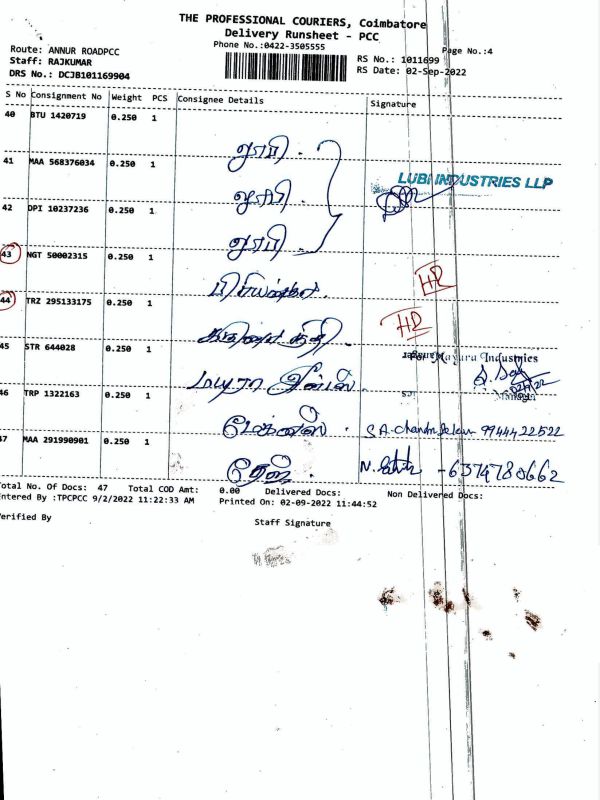 THE PROFESSIONAL COURIERS, Coimbatore
Delivery Runsheet - PCC
Phone No.:0422-3505555
Page No.:4
Route: ANNUR ROADPCC
RS No.: 1011699
Staff: RAJKUMAR
RS Date: 02-Sep-2022
DRS No.: DCJB101169904
S No Consignment No Weight PCS Consignee Details Signature
40 BTU 1420719 0.250 1
லூபி.
41 MAA 568376034 0.250 1
LUBI INDUSTRIES LLP
லூபி.
42 DPI 10237236 0.250 1
லூபி.
43 NGT 50002315 0.250 1
44 TRZ 295133175 0.250 1
45 STR 644028 0.250 1
For Mayura Industries
மயூரா
02/9/22
46 TRP 1322163 0.250 1
S.A. Chandrasekar 9944422522
47 MAA 291990901 0.250 1
- 6374780662
Total No. Of Docs: 47 Total COD Amt: 0.00 Delivered Docs: Non Delivered Docs:
Entered By :TPCPCC 9/2/2022 11:22:33 AM Printed On: 02-09-2022 11:44:52
Verified By
Staff Signature